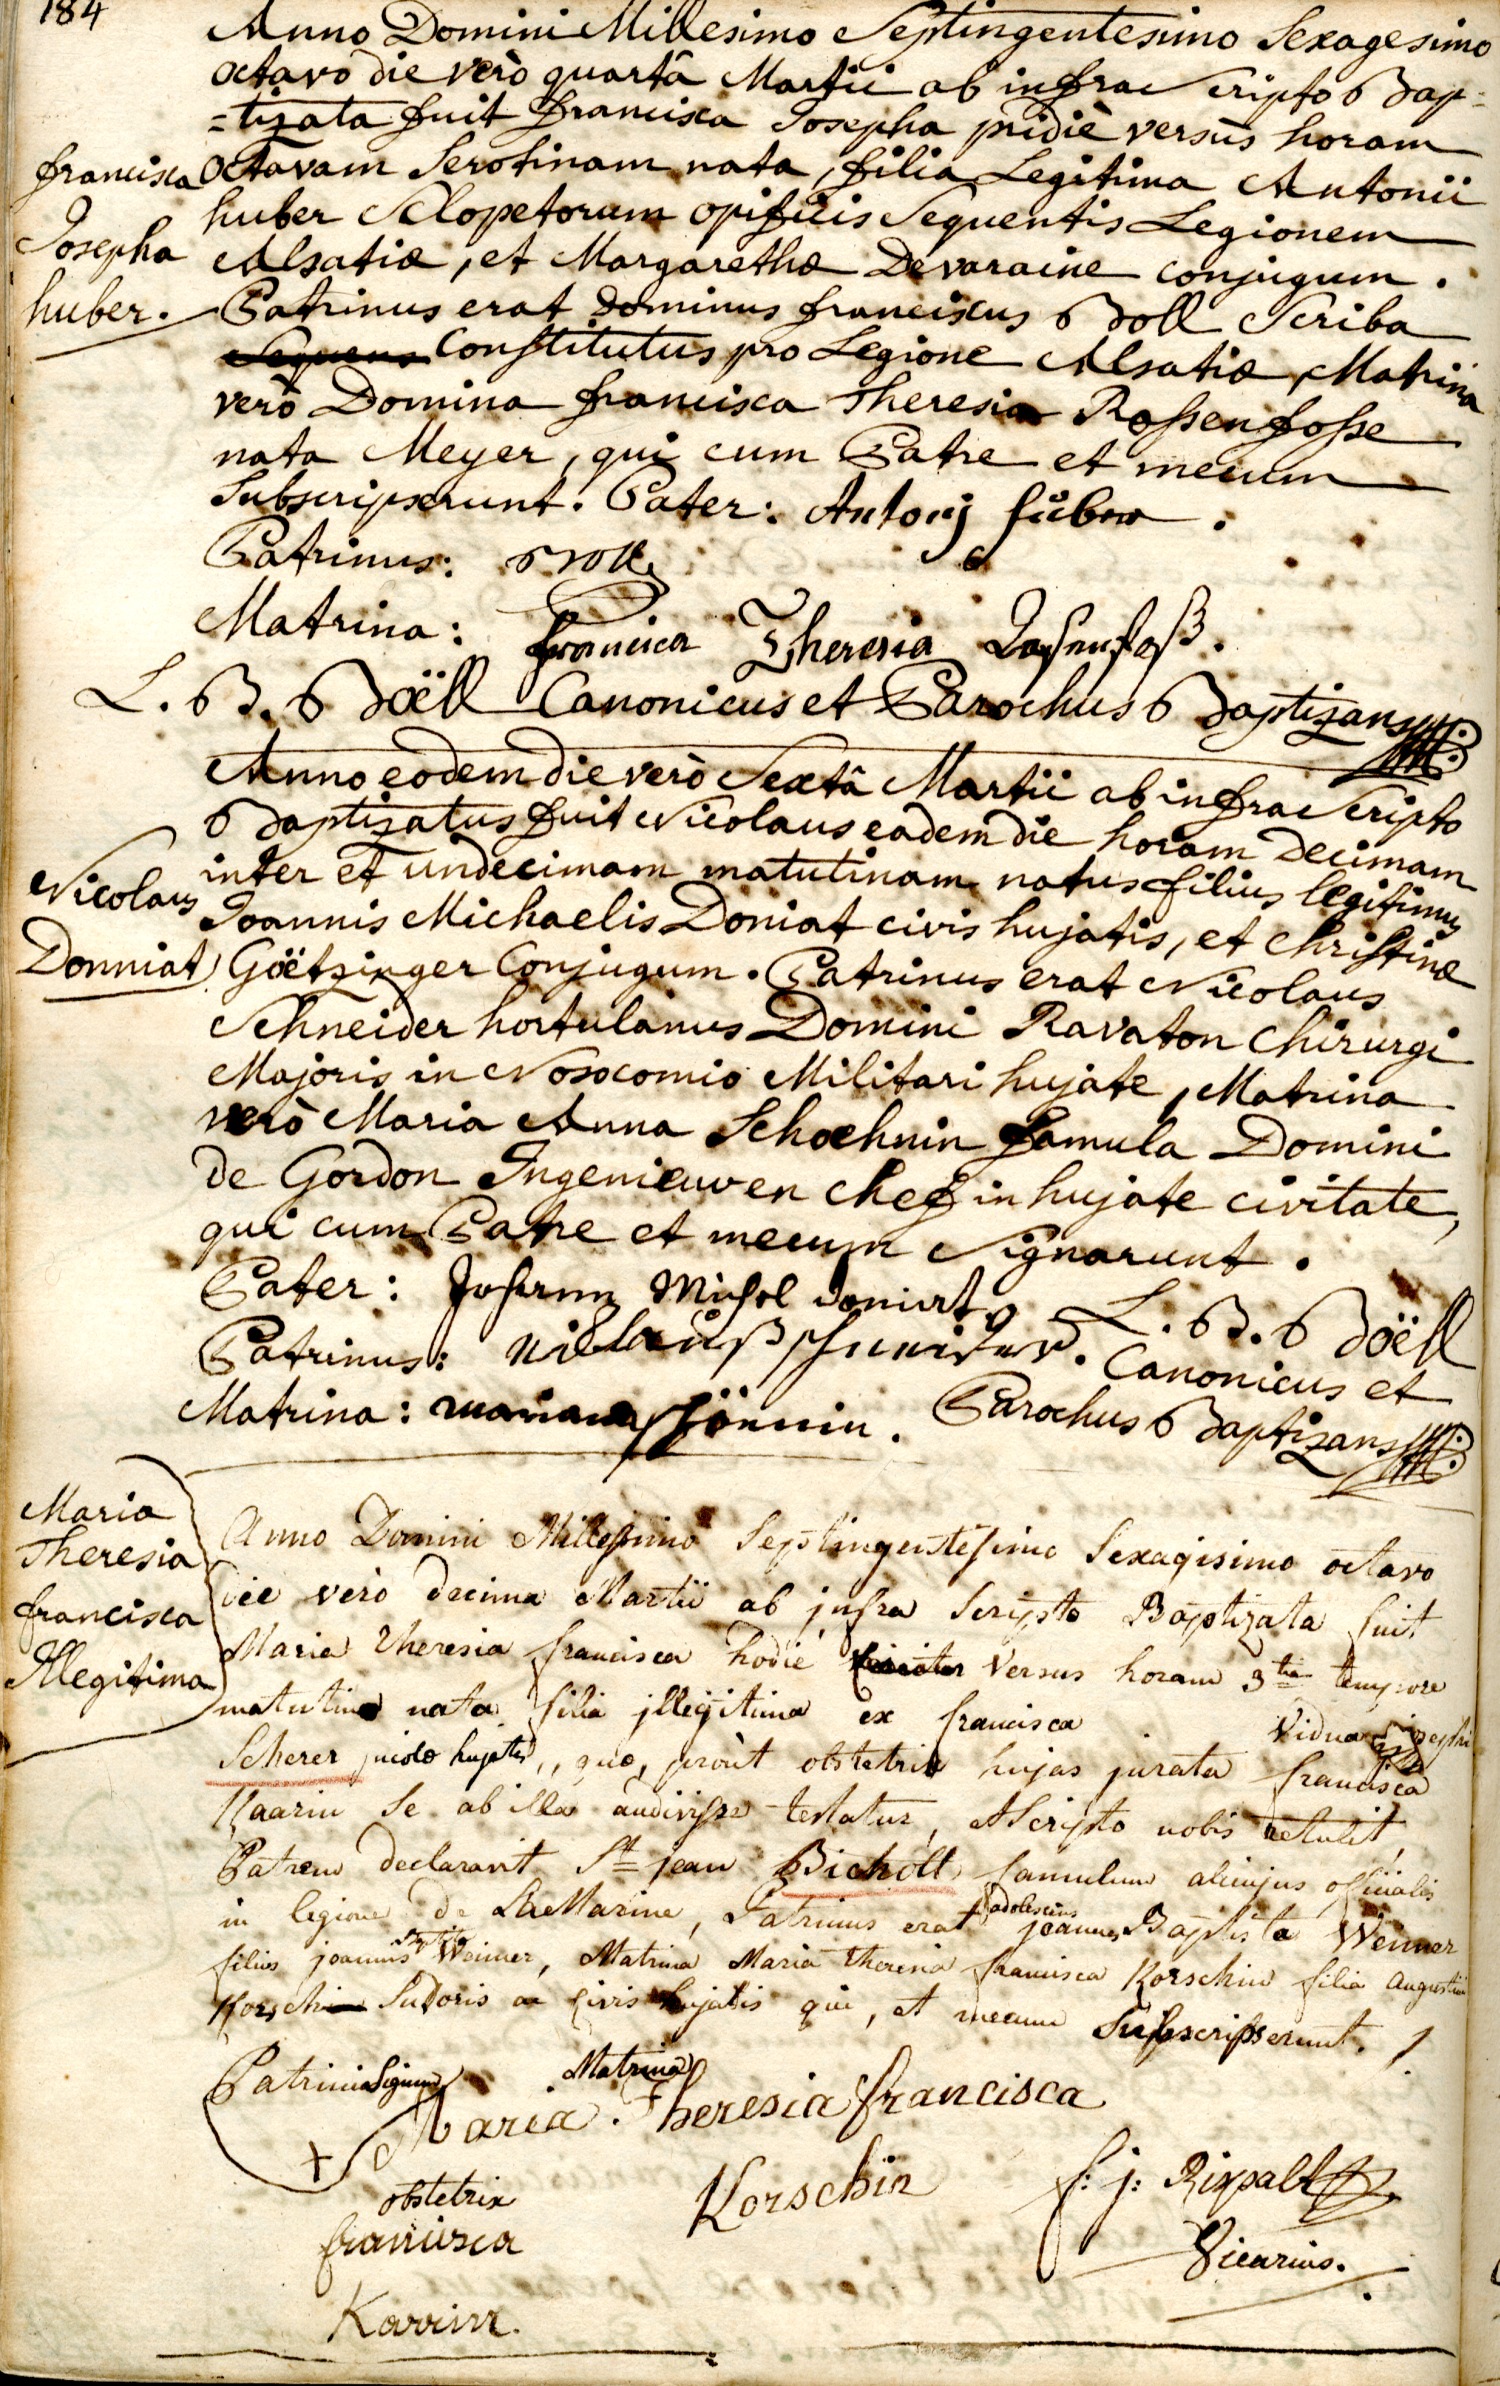 184
Anno Domini Millesimo Septingentesimo Sexagesimo
octavo die verò quartâ Martii ab infra Scripto Bap-
=tizata fuit francisca Josepha pridiè versùs horam
octavam Serotinam nata, filia Legitima Antonii
huber Sclopetorum opificis Sequentis Legionem
Alsatiæ, et Margarethæ Devaraine conjugum.
Patrinus erat Dominus franciscus Boll Scriba
Sequens Constitutus pro Legione Alsatiæ, Matrina
verò Domina francisca Theresia Roßenfosse
nata Meyer, qui cum Patre et mecum
Subscripserunt. Pater: Antonj huber.
Patrinus: Boll
Matrina: francisca Theresia Rosenfoß.
L. B. Boëll Canonicus et Parochus Baptizans
francisca
Josepha
huber.
Anno eodem die verò Sextâ Martii ab infra Scripto
Baptizatus fuit Nicolaus eadem die horam Decimam
inter et undecimam matutinam natus filius legitimus
Joannis Michaelis Doniat civis hujatis, et Christinæ
Göëtzinger Conjugum. Patrinus erat Nicolaus
Schneider hortulanus Domini Ravaton Chirurgi
Majoris in Nosocomio Militari hujate, Matrina
verò Maria Anna Schoehnin famula Domini
de Gordon Ingenieur en chef in hujate civitate,
qui cum Patre et mecum Signarunt.
Pater: Johann Michel doniat
Patrinus: Niclauß schneider.
Matrina: mariana schönnin.
L. B. Boëll
Canonicus et
Parochus Baptizans
Nicolaus
Donniat
Anno Domini Millesimo Septingentesimo Sexagisimo octavo
die verò decima Martii ab jnfra Scripto Baptizata fuit
Maria Theresia francisca hodie versus horam 3tia tempore
matutino nata filia jllegitima ex francisca vidua
Scherer hujate, quæ, proùt obstetrix hujas jurata francisca
Kaarin se ab illa audivisse testatur, et Scripto nobis retulit,
Patrem declaravit St jean Bicholt famulum alicujus officialis
in legione de La Marine, Patrinus erat adolescens joannes Baptista Weimer
filius joannis Baptistæ Weimer, Matrina Maria Theresia francisca Korschin filia Augustini
Korsch Sutoris ac civis hujatis qui, et mecum Subscripserunt.
Patrini Signum
+
Matrina
Maria. Theresia francisca
Korschin
obstetrix
francisca
Karrin.
f: j: Rixpalt
Vicarius.
Maria
Theresia
francisca
Illegitima